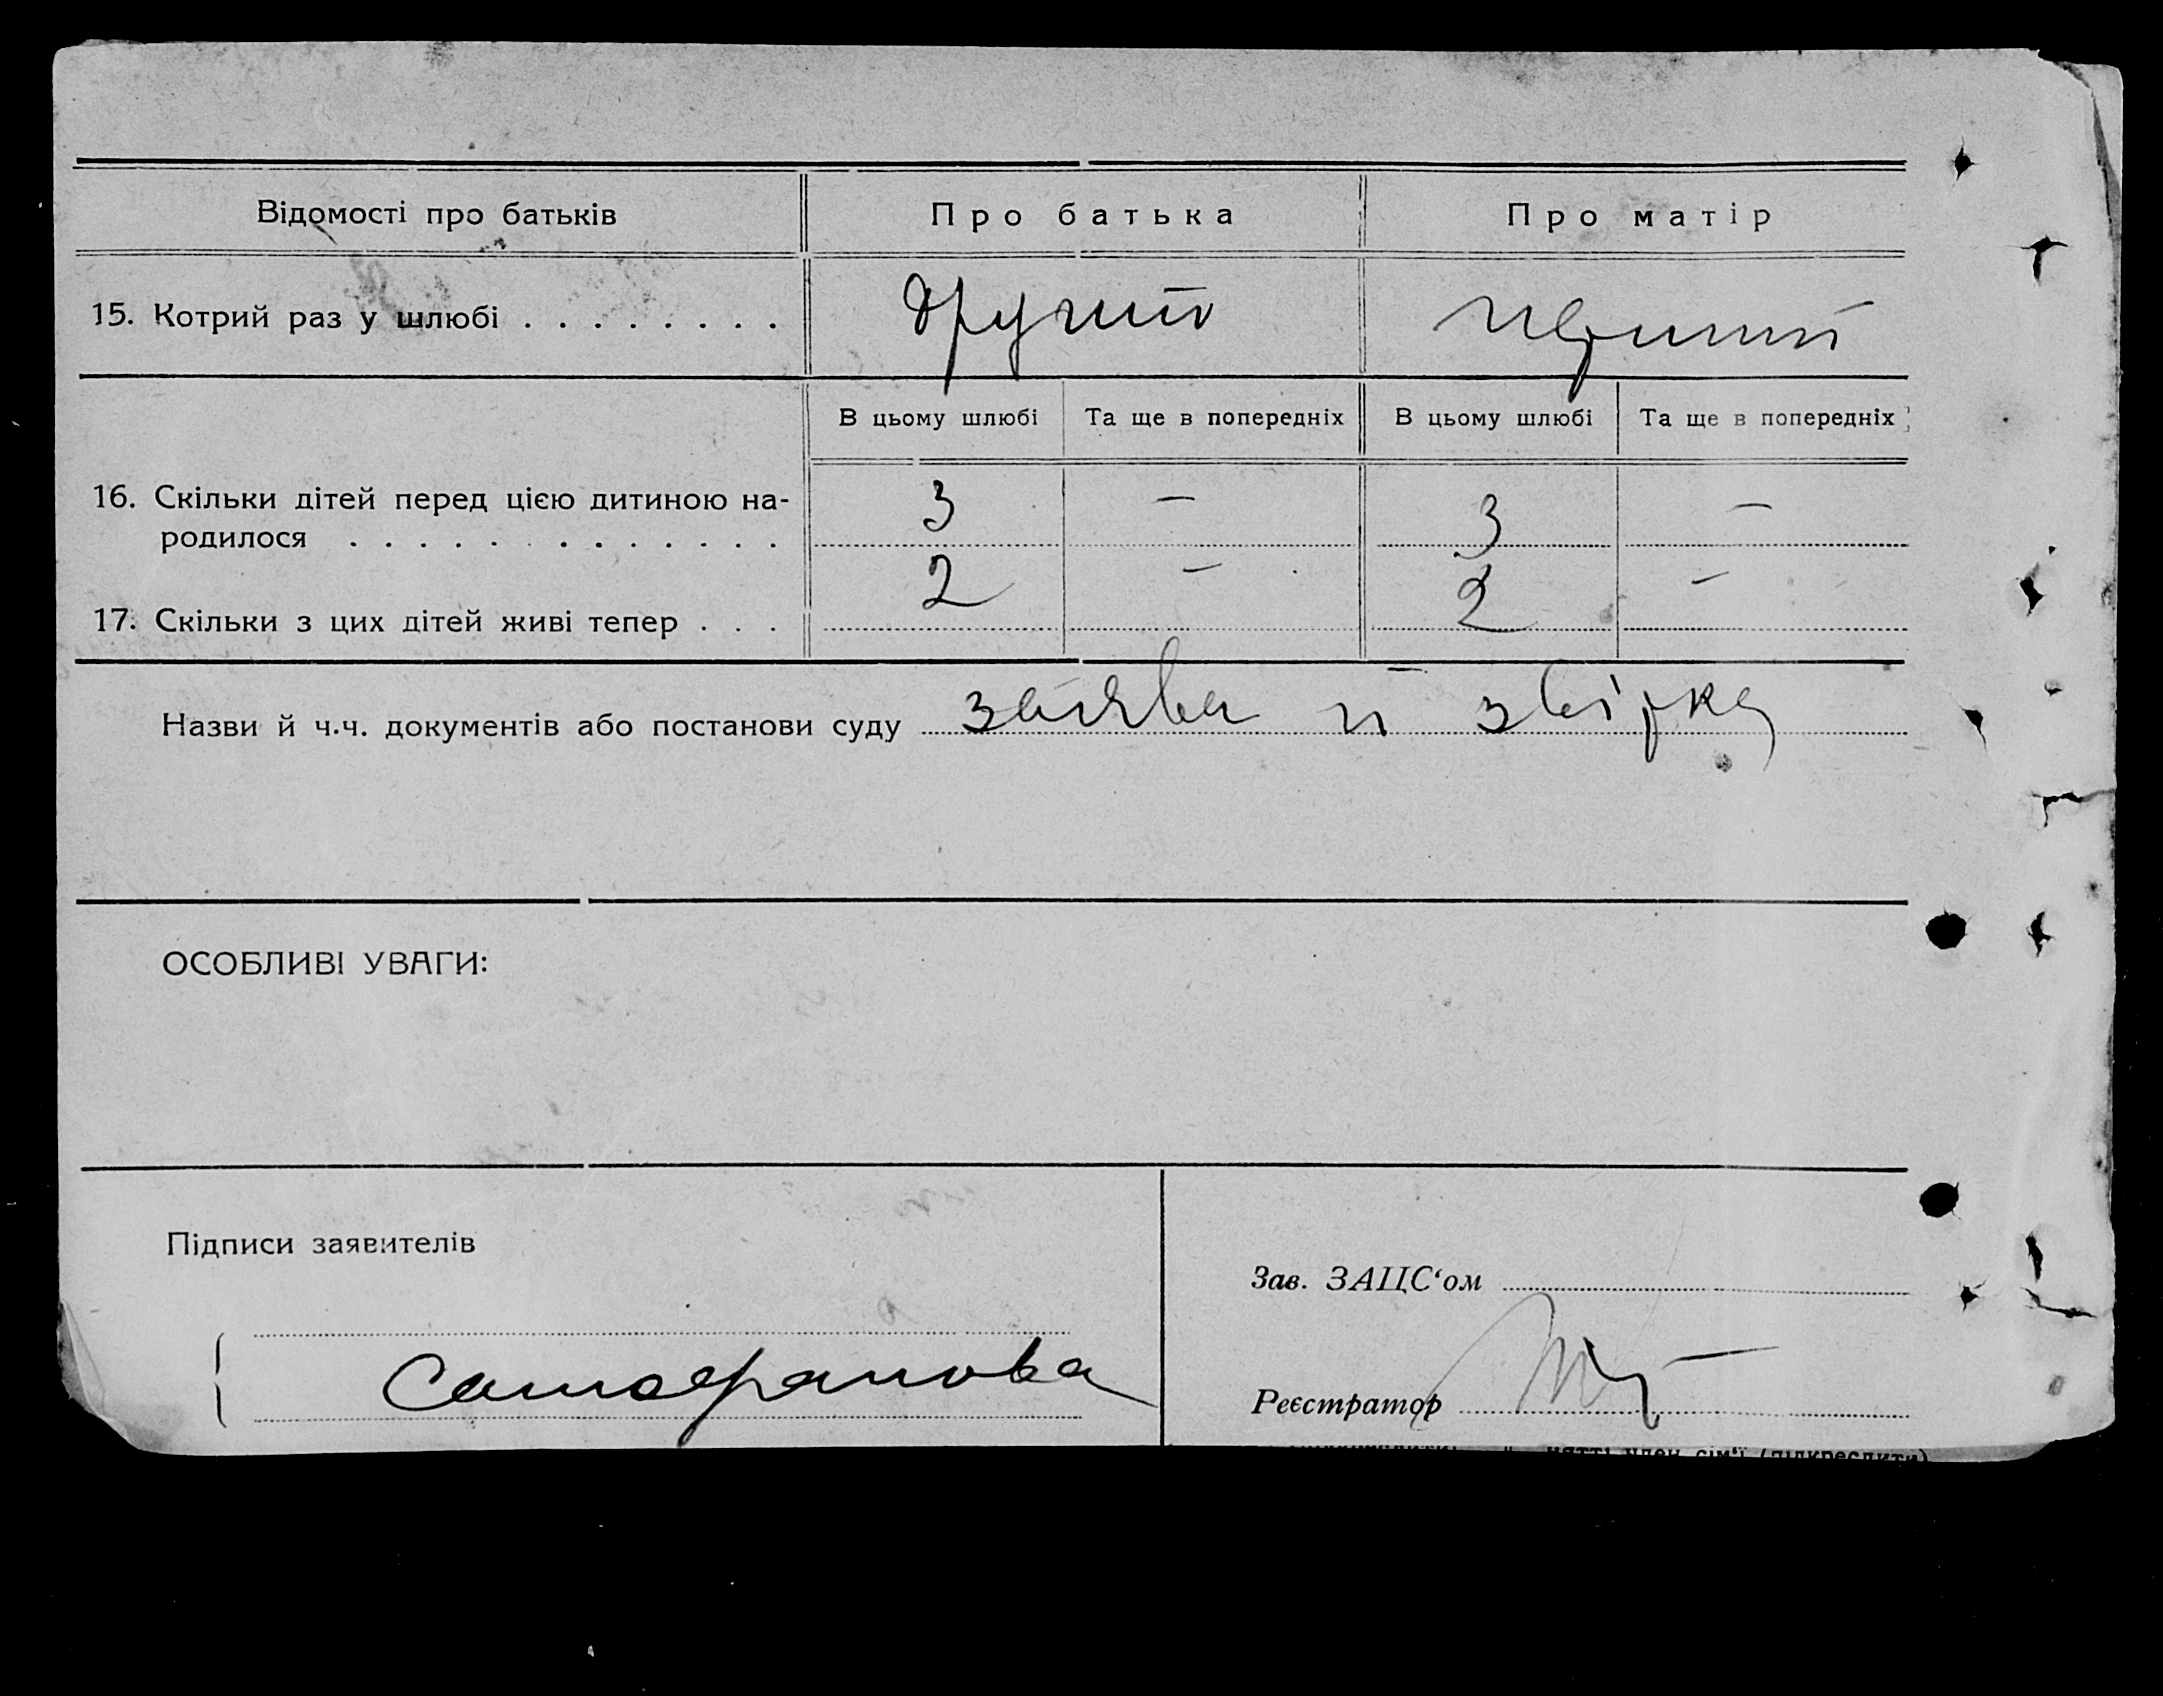 Відомості про батьків Про батька Про матір
15. Котрий раз у шлюбі . . . . . . . . другий перший
В цьому шлюбі Та ще в попередніх В цьому шлюбі Та ще в попередніх
16. Скільки дітей перед цією дитиною на- 3 — 3 —
родилося . . . . . . . . . . . . .
17. Скільки з цих дітей живі тепер . . . 2 — 2 —
Назви й ч.ч. документів або постанови суду заява й звірка
ОСОБЛИВІ УВАГИ:
Підписи заявителів
Зав. ЗАЦС‘ом
Реєстратор
член сім'ї (підкреслити)